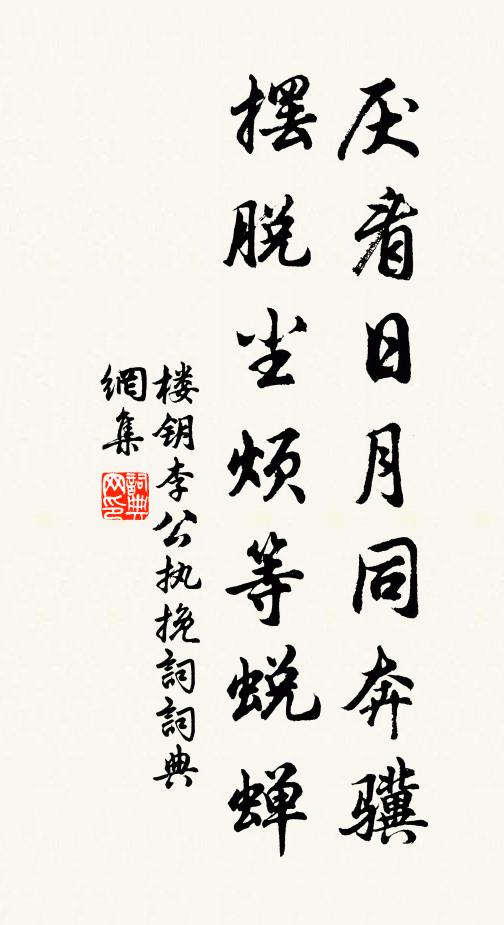 厌看日月同奔骥
摆脱尘烦等蜕蝉
楼钥李公执挽詞詞典
網集
詞典
网印